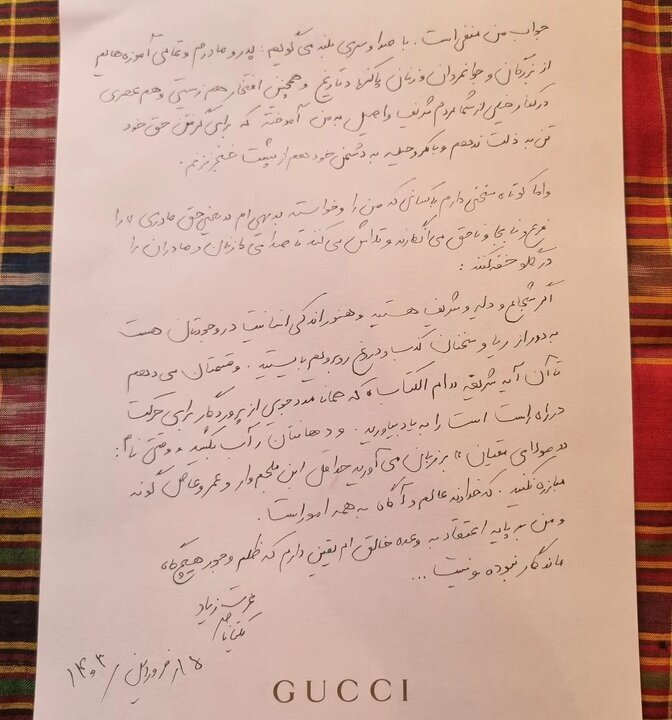 جواب من منفی است. با صدا و سری بلند می گویم: پدر و مادرم و تمامی آموزه هایم
از بزرگان و جوانمردان و زنان پاک نهاد تاریخ و همچنین افتخار هم زیستی و هم عصری
در کنار خیلی از شما مردم شریف و اصیل به من آموخته که برای گرفتن حق خود
تن به ذلت ندهم و با مکر و حیله به دشمن خود هم از پشت خنجر نزنم.
و اما کوتاه سخنی دارم با کسانی که من را و خواسته بدیهی ام به یعنی حق مادری "را
فرع و نابجا و ناحق می انگارند و تلاش می کنند تا صدای ما زنان و مادران را
در گلو خفه کنند:
اگر شجاع و دلیر و شریف هستید و هنوز اندکی انسانیت در وجودتان هست
به دور از ریا و سخنان کذب و دروغ روبرویم بایستید. و قسمتان می دهم
تا آن آیه شریفه "ام الکتاب" که همانا مددجویی از پروردگار برای حرکت
در راه راست است را به یاد بیاورید. و دهانتان را آب بکشید و وقتی نام:
"مولای متقیان" بر زبان می آورید حداقل ابن ملجم وار و عمروعاص گونه
مبارزه نکنید. که خداوند عالم و آگاه به همه امور است.
و من بر پایه اعتقاد به وعده خالق ام یقین دارم که ظلم و جور هیچگاه
ماندگار نبوده و نیست...
عزت زیاد
۱۸ از فروردین / ۱۴۰۳
GUCCI